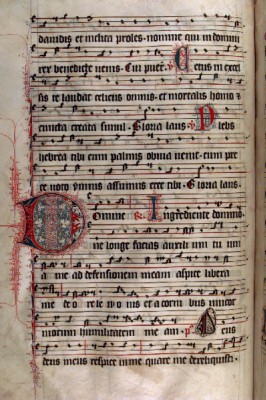 dauidis et inclita proles. nomine qui in domini
rex benedicte uenis. Cui puer. Cetus in excel
sis te laudat celicus omnis. et mortalis homo et
cuncta creata simul. Gloria laus. Plebs
hebrea tibi cum palmis obuia uenit. cum pre
ce uoto ymnis assumus ecce tibi. Gloria laus.
Domine Ingrediente domino
ne longe facias auxili um tu um
a me ad defensionem meam aspice libera
me de o re le o nis et a corni bus unicor
niorum humilitatem me am. Deus
deus meus respice in me quare me dereliquisti